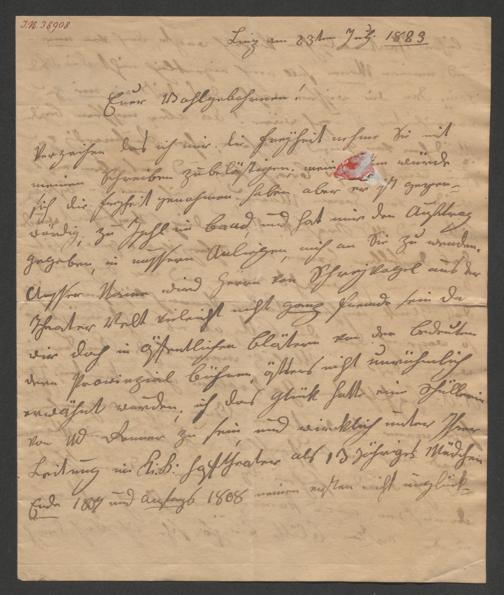 I.N. 38908
Linz am 23ten July 1823
Euer Wohlgebohrnen!
Verzeihen das ich mir die Freyheit nehme Sie mit
meinen Schreiben zu belästigen, mein würde
sich die Freyheit genohmen haben, aber er ist gegen-
wärdig, zu Ischl im baad, und hat mir den Auftrag
gegeben, in unssern Anligen, mich an Sie zu wenden.
Unsser Name wird Herrn von Schreyvogel aus der
Theater Welt vieleicht nicht ganz fremd sein da
wir doch in öffentlichen blätern von den bedeuten
dern Provinzial bühnen, öffters nicht unrühmlich
erwähnt wurden, ich das Glück hatte eine Schüllerin
von zu sein, und wirklich unter Ihrer
Leitung im K:K: Hoftheater als 13 jähriges Mädchen
Ende 1807 und Anfangs 1808 meinen ersten nicht unglück-